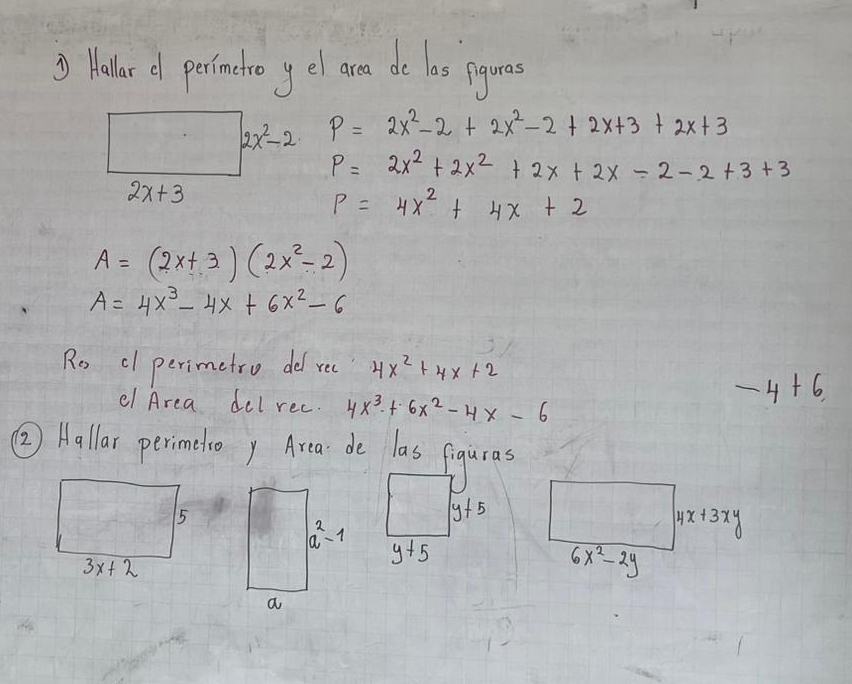 1) Hallar el perímetro y el area de las figuras
2x²-2
2x+3
P = 2x²-2 + 2x²-2 + 2x+3 + 2x+3
P = 2x² + 2x² + 2x + 2x - 2 - 2 + 3 + 3
P = 4x² + 4x + 2
A = (2x+3)(2x²-2)
A = 4x³ - 4x + 6x² - 6
Res el perimetro del rec 4x² + 4x + 2
- 4 + 6
el Area del rec. 4x³ + 6x² - 4x - 6
2 Hallar perimetro y Area de las figuras
5
3x+2
a²-1
a
y+5
y+5
4x+3xy
6x²-2y